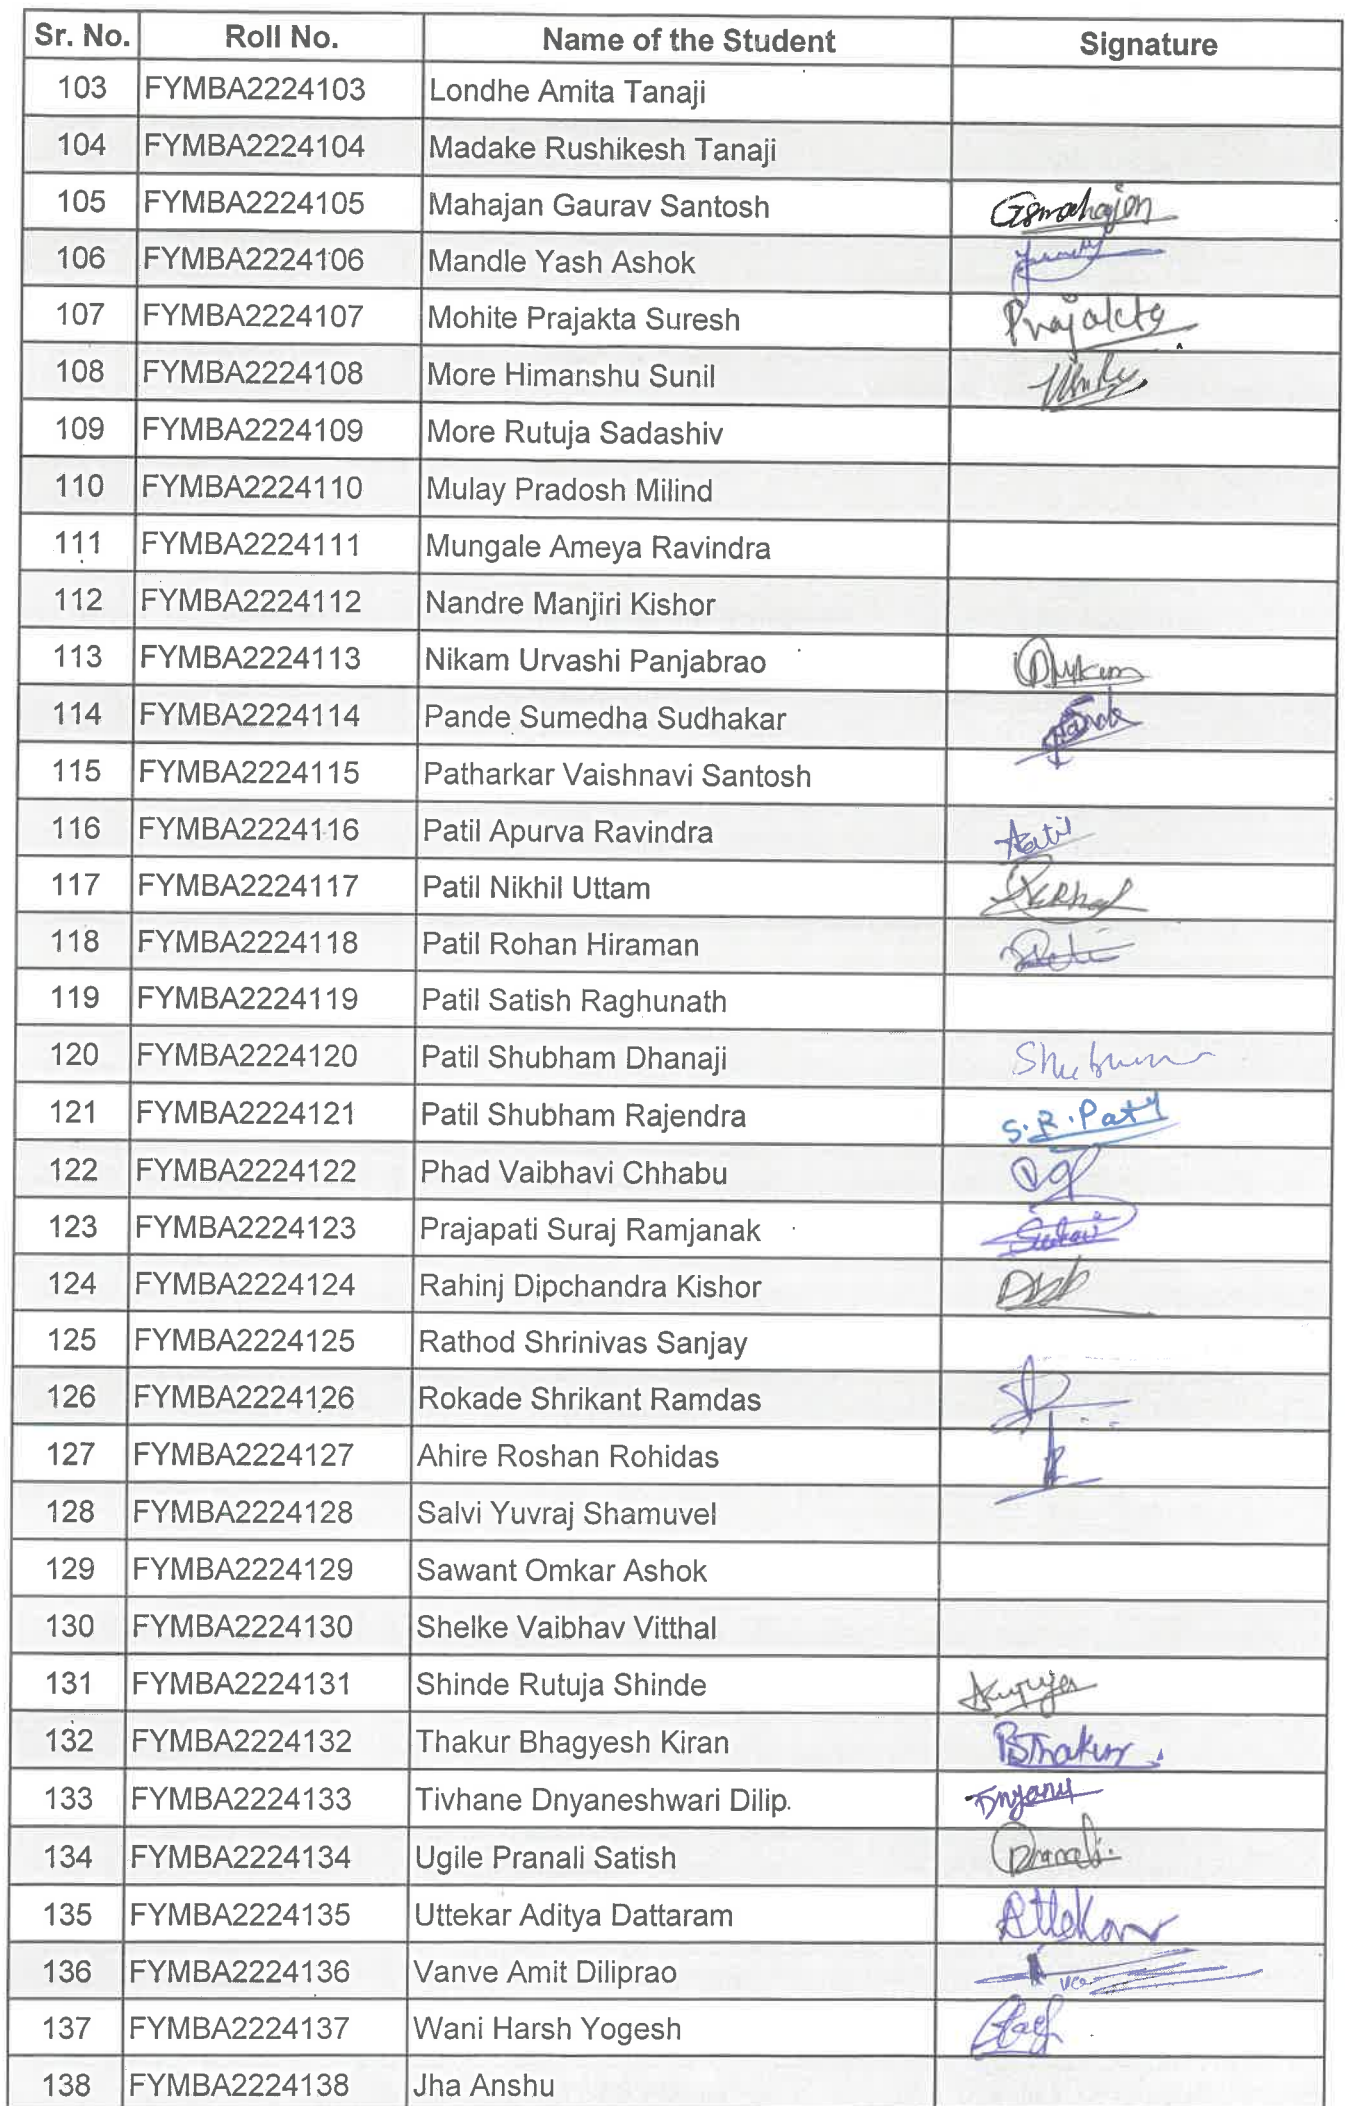 Sr. No. Roll No. Name of the Student Signature
103 FYMBA2224103 Londhe Amita Tanaji
104 FYMBA2224104 Madake Rushikesh Tanaji
105 FYMBA2224105 Mahajan Gaurav Santosh GSmahajan
106 FYMBA2224106 Mandle Yash Ashok
107 FYMBA2224107 Mohite Prajakta Suresh Prajakta
108 FYMBA2224108 More Himanshu Sunil
109 FYMBA2224109 More Rutuja Sadashiv
110 FYMBA2224110 Mulay Pradosh Milind
111 FYMBA2224111 Mungale Ameya Ravindra
112 FYMBA2224112 Nandre Manjiri Kishor
113 FYMBA2224113 Nikam Urvashi Panjabrao
114 FYMBA2224114 Pande Sumedha Sudhakar
115 FYMBA2224115 Patharkar Vaishnavi Santosh
116 FYMBA2224116 Patil Apurva Ravindra
117 FYMBA2224117 Patil Nikhil Uttam
118 FYMBA2224118 Patil Rohan Hiraman
119 FYMBA2224119 Patil Satish Raghunath
120 FYMBA2224120 Patil Shubham Dhanaji
121 FYMBA2224121 Patil Shubham Rajendra S.R.Patil
122 FYMBA2224122 Phad Vaibhavi Chhabu
123 FYMBA2224123 Prajapati Suraj Ramjanak
124 FYMBA2224124 Rahinj Dipchandra Kishor
125 FYMBA2224125 Rathod Shrinivas Sanjay
126 FYMBA2224126 Rokade Shrikant Ramdas
127 FYMBA2224127 Ahire Roshan Rohidas
128 FYMBA2224128 Salvi Yuvraj Shamuvel
129 FYMBA2224129 Sawant Omkar Ashok
130 FYMBA2224130 Shelke Vaibhav Vitthal
131 FYMBA2224131 Shinde Rutuja Shinde
132 FYMBA2224132 Thakur Bhagyesh Kiran BThakur
133 FYMBA2224133 Tivhane Dnyaneshwari Dilip.
134 FYMBA2224134 Ugile Pranali Satish Pranali
135 FYMBA2224135 Uttekar Aditya Dattaram
136 FYMBA2224136 Vanve Amit Diliprao
137 FYMBA2224137 Wani Harsh Yogesh
138 FYMBA2224138 Jha Anshu